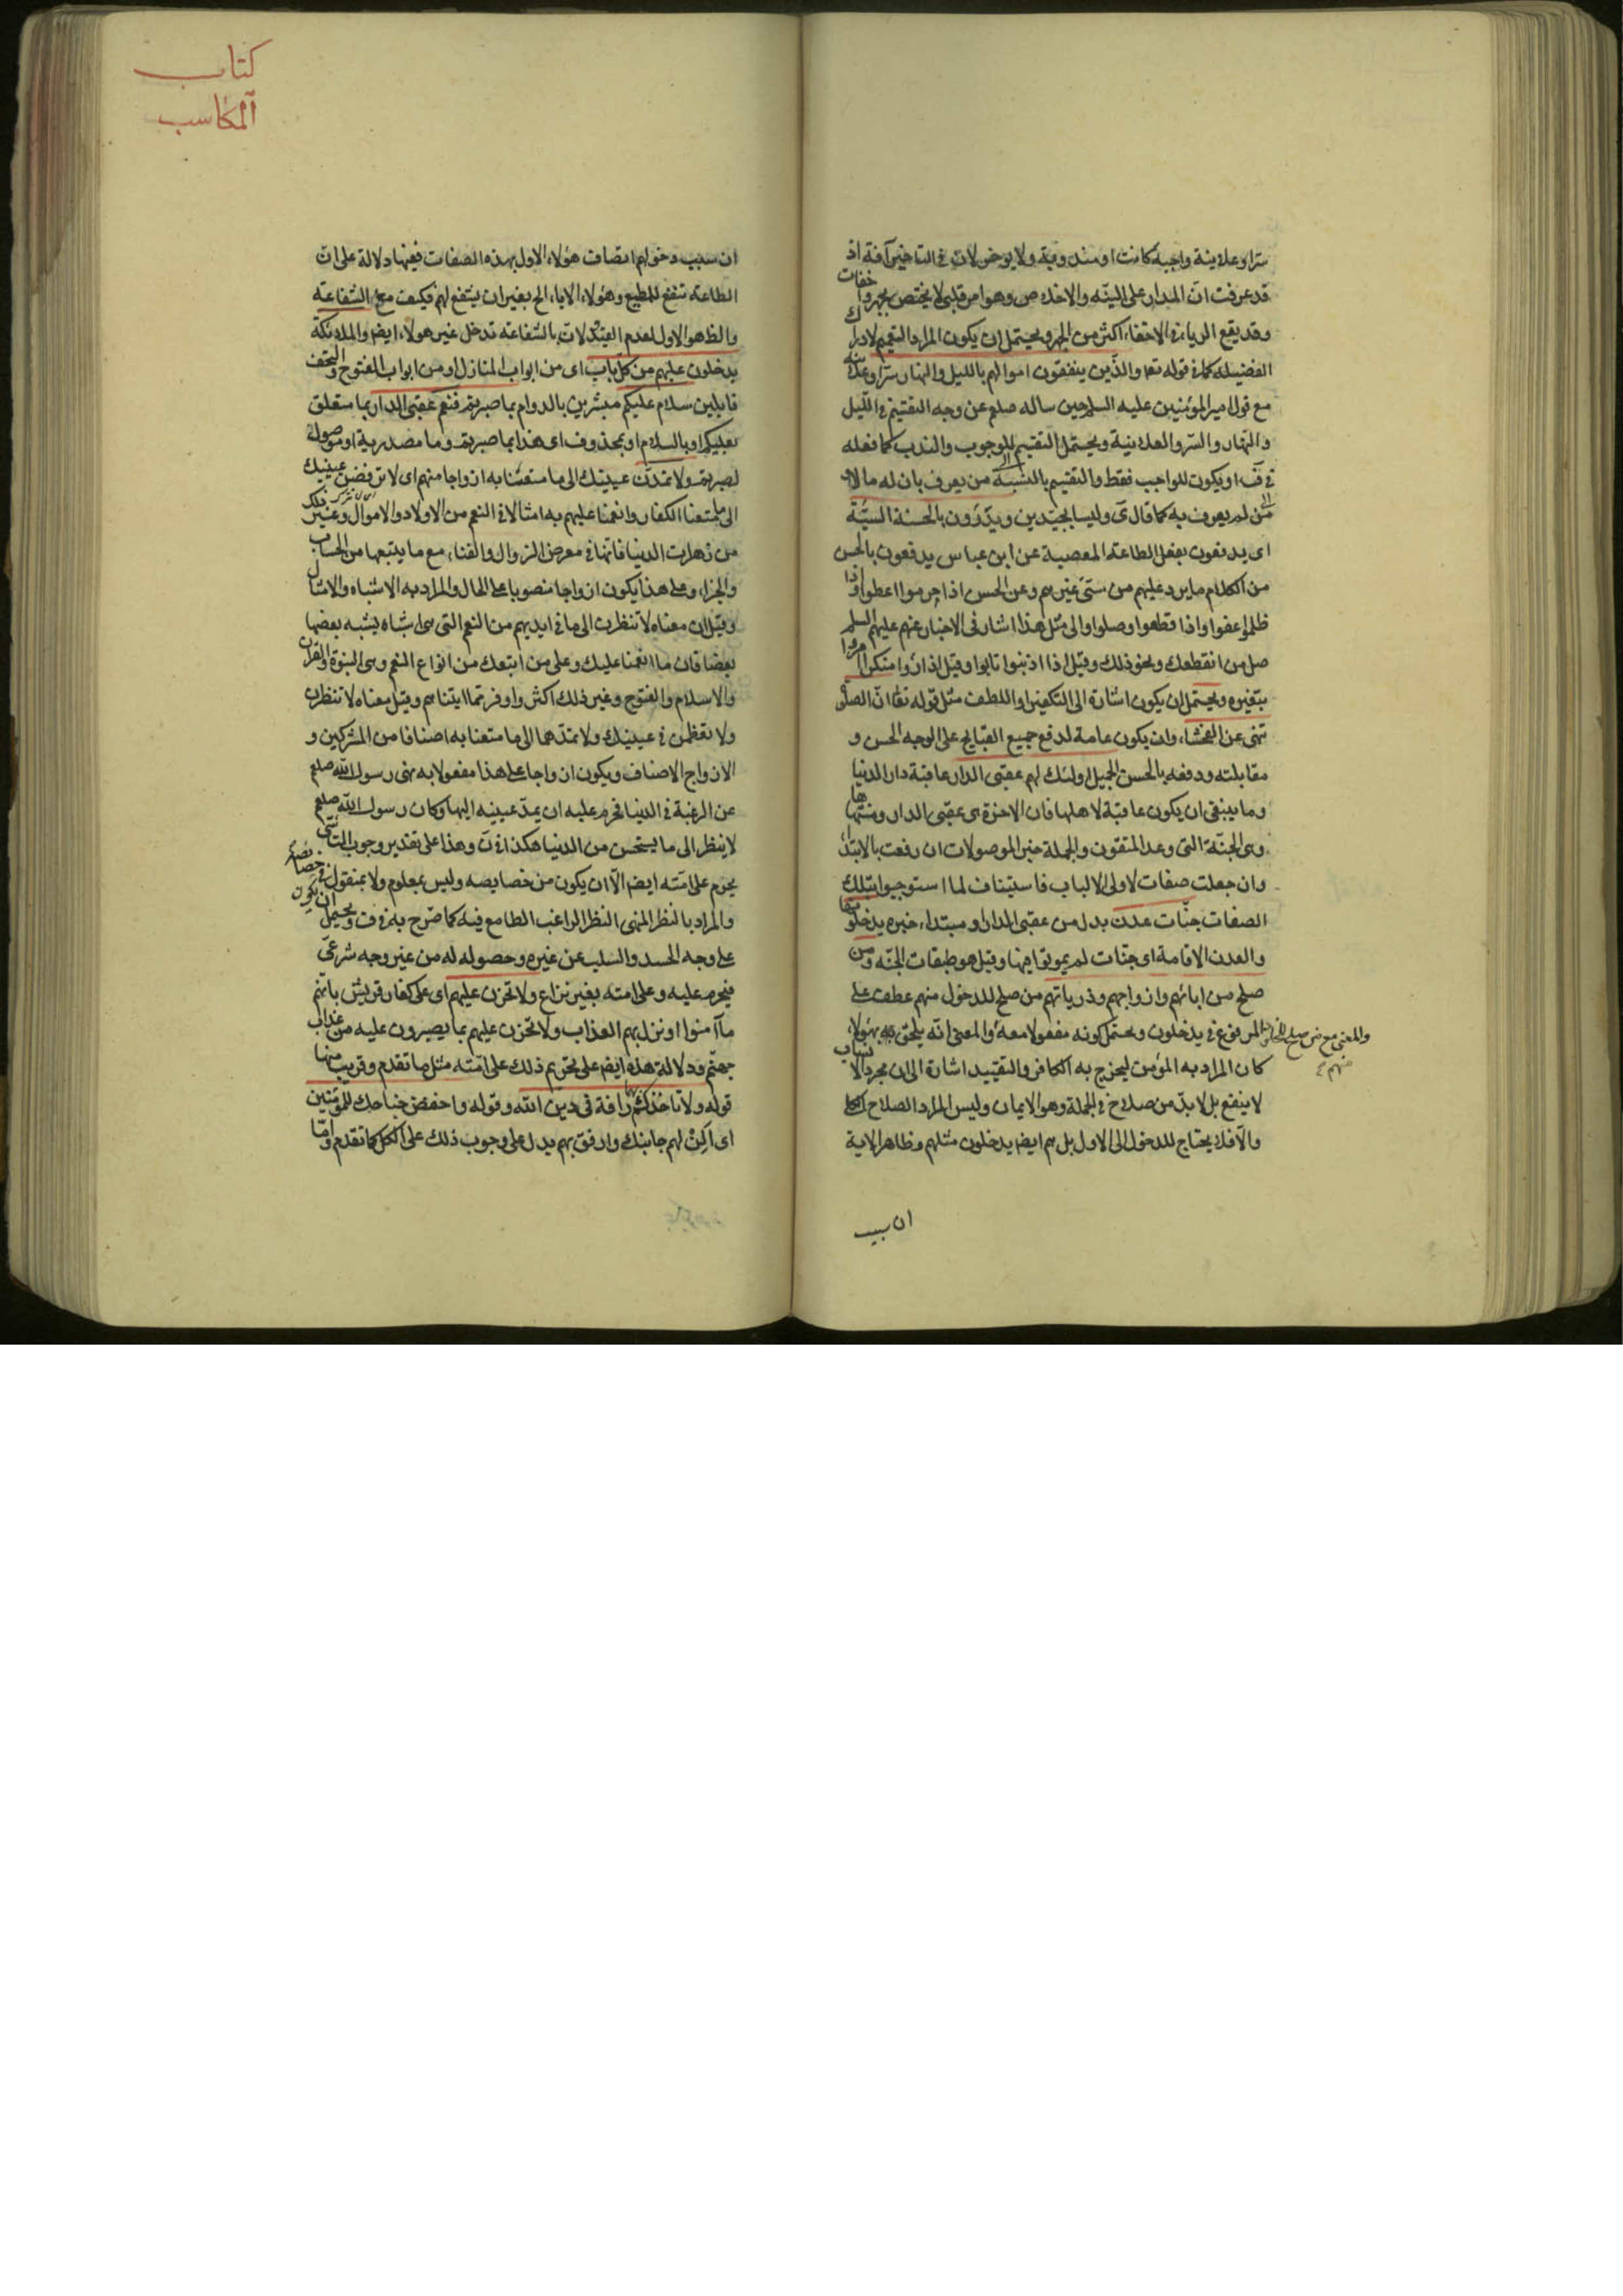 سرا وعلانية واجبة كانت او مندوبة ولا يؤخر لان في التاخير آفة اذ
قد عرفت ان المدار على النية والاخلاص وهو امر قلبي لا يختص بجهر واخفات
وقد يقع الرياء في الاخفاء اكثر من الجهر ويحتمل ان يكون المراد التعميم لادراك
الفضيلة كما في قوله تعا والذين ينفقون اموالهم بالليل والنهار سرا وعلانية
مع قول امير المؤمنين عليه السلم حين ساله صلعم عن وجه التقسيم في الليل
والنهار والسر والعلانية ويحتمل التقسيم للوجوب والندب كما فعله
في ف او يكون للواجب فقط والتقسيم بالنسبة الى من يعرف بان له مالا و
الى من لم يعرف به كما قال ى وليسا بجيدين ويدرؤن بالحسنة السيئة
اى يدفعون بفعل الطاعة المعصية عن ابن عباس يدفعون بالحسن
من الكلام ما يرد عليهم من سئ غيرهم وعن الحسن اذا حرموا اعطوا واذا
ظلموا عفوا واذا قطعوا وصلوا والى مثل هذا اشار في الاخبار عنهم عليهم السلم
صل من انقطعك ونحو ذلك وقيل اذا اذنبوا تابوا وقيل اذا رأوا منكرا امروا
بتغيره ويحتمل ان يكون اشارة الى التكفير او اللطف مثل قوله تعا ان الصلوة
تنهى عن الفحشاء وان يكون عامة لدفع جميع القبايح على الوجه الحسن و
مقابلته ودفعه بالحسن الجميل اولئك لهم عقبى الدار عاقبة دار الدنيا
وما ينبغى ان يكون عاقبة لاهلها فان الاخرة هى عقبى الدار ومنتهاها
وهى الجنة التى وعد المتقون والجملة خبر الموصولات ان رفعت بالابتداء
وان جعلت صفات لاولى الالباب فاستيناف لما استوجبوا بتلك
الصفات جنات عدن بدل من عقبى الدار او مبتداء خبره يدخلونها
والعدن الاقامة اى جنات لم يموتوا فيها وقيل هو طبقات الجنة ومن
صلح من ابائهم وازواجهم وذرياتهم من صلح للدخول منهم عطف على
المرفوع في يدخلون ويحتمل كونه مفعولا معه والمعنى انه يلحق به بهؤلاء
والمعنى مع من صلح للدخول منهم
كان المراد به المؤمن ليخرج به الكافر والتقييد اشارة الى ان مجرد الانساب
لا ينفع بل لا بد من صلاح في الجملة وهو الايمان وليس المراد الصلاح
والا فلا يحتاج للدخول الى الاول بل هم ايضا يدخلون مثلهم وظاهر الاية
ان سبب
كتاب
المكاسب
ان سبب دخولهم اتصاف هؤلاء الاول بهذه الصفات ففيها دلالة على ان
الطاعة تنفع للمطيع وهؤلاء الاباء الخ بغير ان يشفع لهم فكيف مع الشفاعة
والظ هو الاول لعدم القيد ولان بالشفاعة تدخل غير هؤلاء ايض والملائكة
يدخلون عليهم من كل باب اى من ابواب المنازل او من ابواب الفتوح والتحف
قايلين سلام عليكم مبشرين بالدوام بما صبرتم فنعم عقبى الدار بما متعلق
بعليكم او بالسلام او بمحذوف اى هذا بما صبرتم وما مصدرية او موصولة
لصبرتم ولا تمدن عينيك الى ما متعنا به ازواجا منهم اى لا ترفعن عينيك
الى ما متعنا الكفار وانعمنا عليهم به امثالا في النعم من الاولاد والاموال وغير ذلك
من زهرات الدنيا فانها في معرض الزوال والفناء مع ما يتبعها من الحساب
والجزاء وعلى هذا يكون ازواجا منصوبا على الحال والمراد به الاشباه والامثال
وقيل ان معناه لا تنظرن الى ما في ايديهم من النعم التى هى اشباه يشبه بعضها
بعضا فان ما انعمنا عليك وعلى من اتبعك من انواع النعم وهى النبوة والقران
والاسلام والفتوح وغير ذلك اكثر واوفر مما اتيناهم وقيل معناه لا تنظرن
ولا تعظمن في عينيك ولا تمدهما الى ما متعنا به اصنافا من المشركين و
الازواج الاصناف ويكون ازواجا على هذا مفعولا به نهى رسول الله صلعم
عن الرغبة في الدنيا فحرم عليه ان يمد عينيه اليها وكان رسول الله صلعم
لا ينظر الى ما يستحسن من الدنيا هكذا في ن وهذا على تقدير وجوب التاسى
يحرم على امته ايضا الا ان يكون من خصايصه وليس بمعلوم ولا بمنقول في خصائصه
والمراد بالنظر المنهى النظر الراغب الطامع فيه كما صرح به في ف ويحتمل ان يكون
على وجه الحسد والسلب عن غيره وحصوله له من غير وجه شرعى
فيحرم عليه وعلى امته بغير نزاع ولا تحزن عليهم اى على كفار قريش بانهم
ما آمنوا او نزل بهم العذاب ولا تحزن عليهم بما يصيرون عليه من عذاب
جهنم ودلالة هذه ايض على تحريم ذلك على امته مثل ما تقدم وقريب منها
قوله ولا تاخذكم بهما رافة في دين الله وقوله واخفض جناحك للمؤمنين
اى الن لهم جانبك وارفق بهم يدل على وجوب ذلك على الكل كما تقدم واما